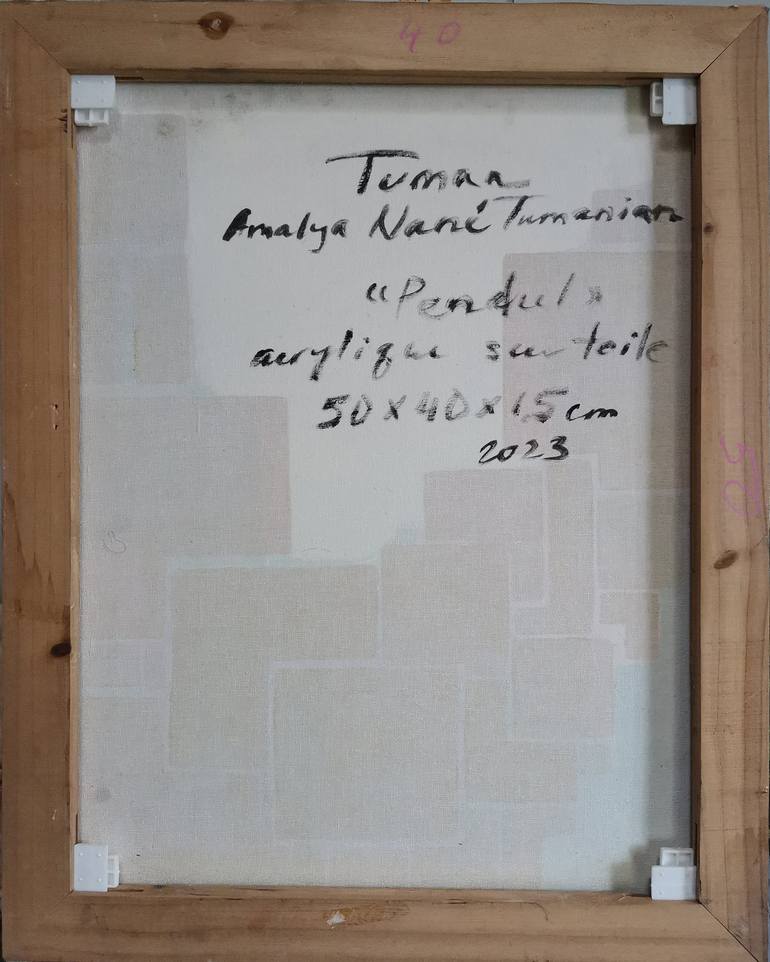 40
Tuman
Amalya Nané Tumanian
«Pendul»
acrylique sur toile
50 x 40 x 1.5 cm
2023
50